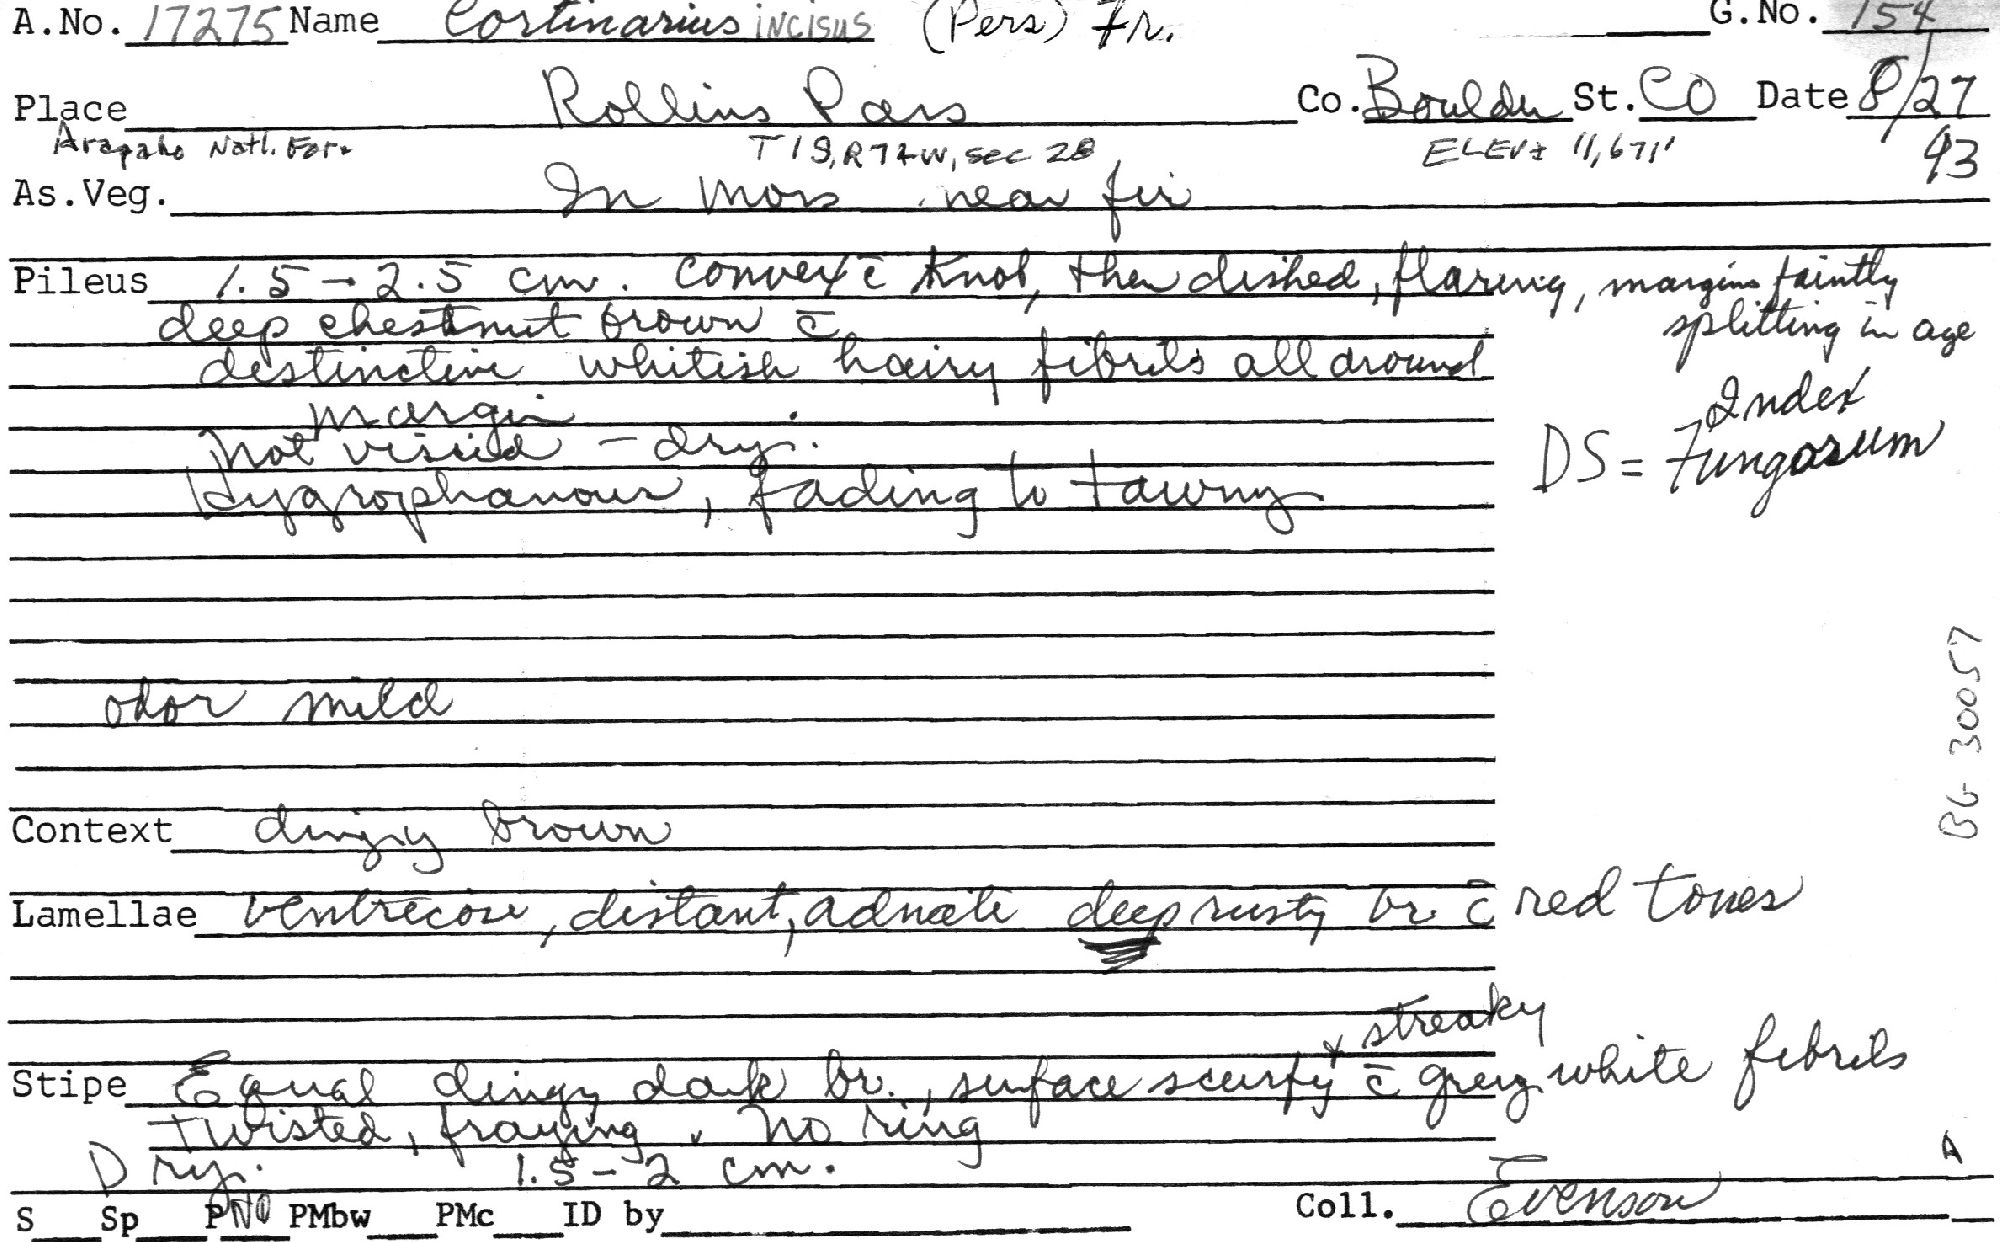 A.No. 17275 Name Cortinarius incisus (Pers) Fr. G.No. 154
Place Rollins Pass Co. Boulder St. CO Date 8/27
Arapaho Natl. For. T1S, R74W, Sec 28 ELEV± 11,671' 93
As.Veg. In moss near fir
Pileus 1.5 - 2.5 cm. Convex c̄ knob, then dished, flaring, margins faintly
splitting in age
deep chestnut brown c̄
destinctive whitish hairy fibrils all around
margin
Index
not viscid - dry.
DS = Fungorum
Hygrophanous, fading to tawny
odor mild
BG 30057
Context dingy brown
Lamellae ventrecose, distant, adnate deep rusty br. c̄ red tones
streaky
Stipe Equal dingy dark br., surface scurfy c̄ grey white fibrils
twisted, fraying. No ring
A
Dry. 1.5 - 2 cm.
S Sp P NO PMbw PMc ID by Coll. Evenson